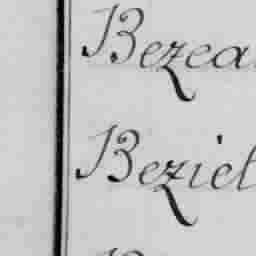 Bezea
Beziel